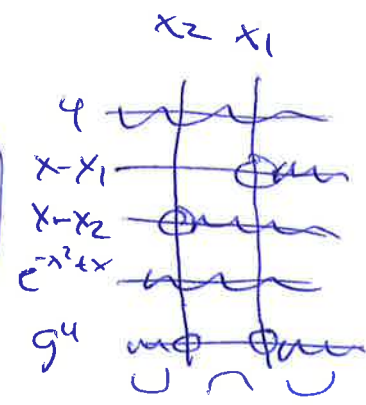 x2 x1
4
x-x1
x-x2
e^-x²+x
g"